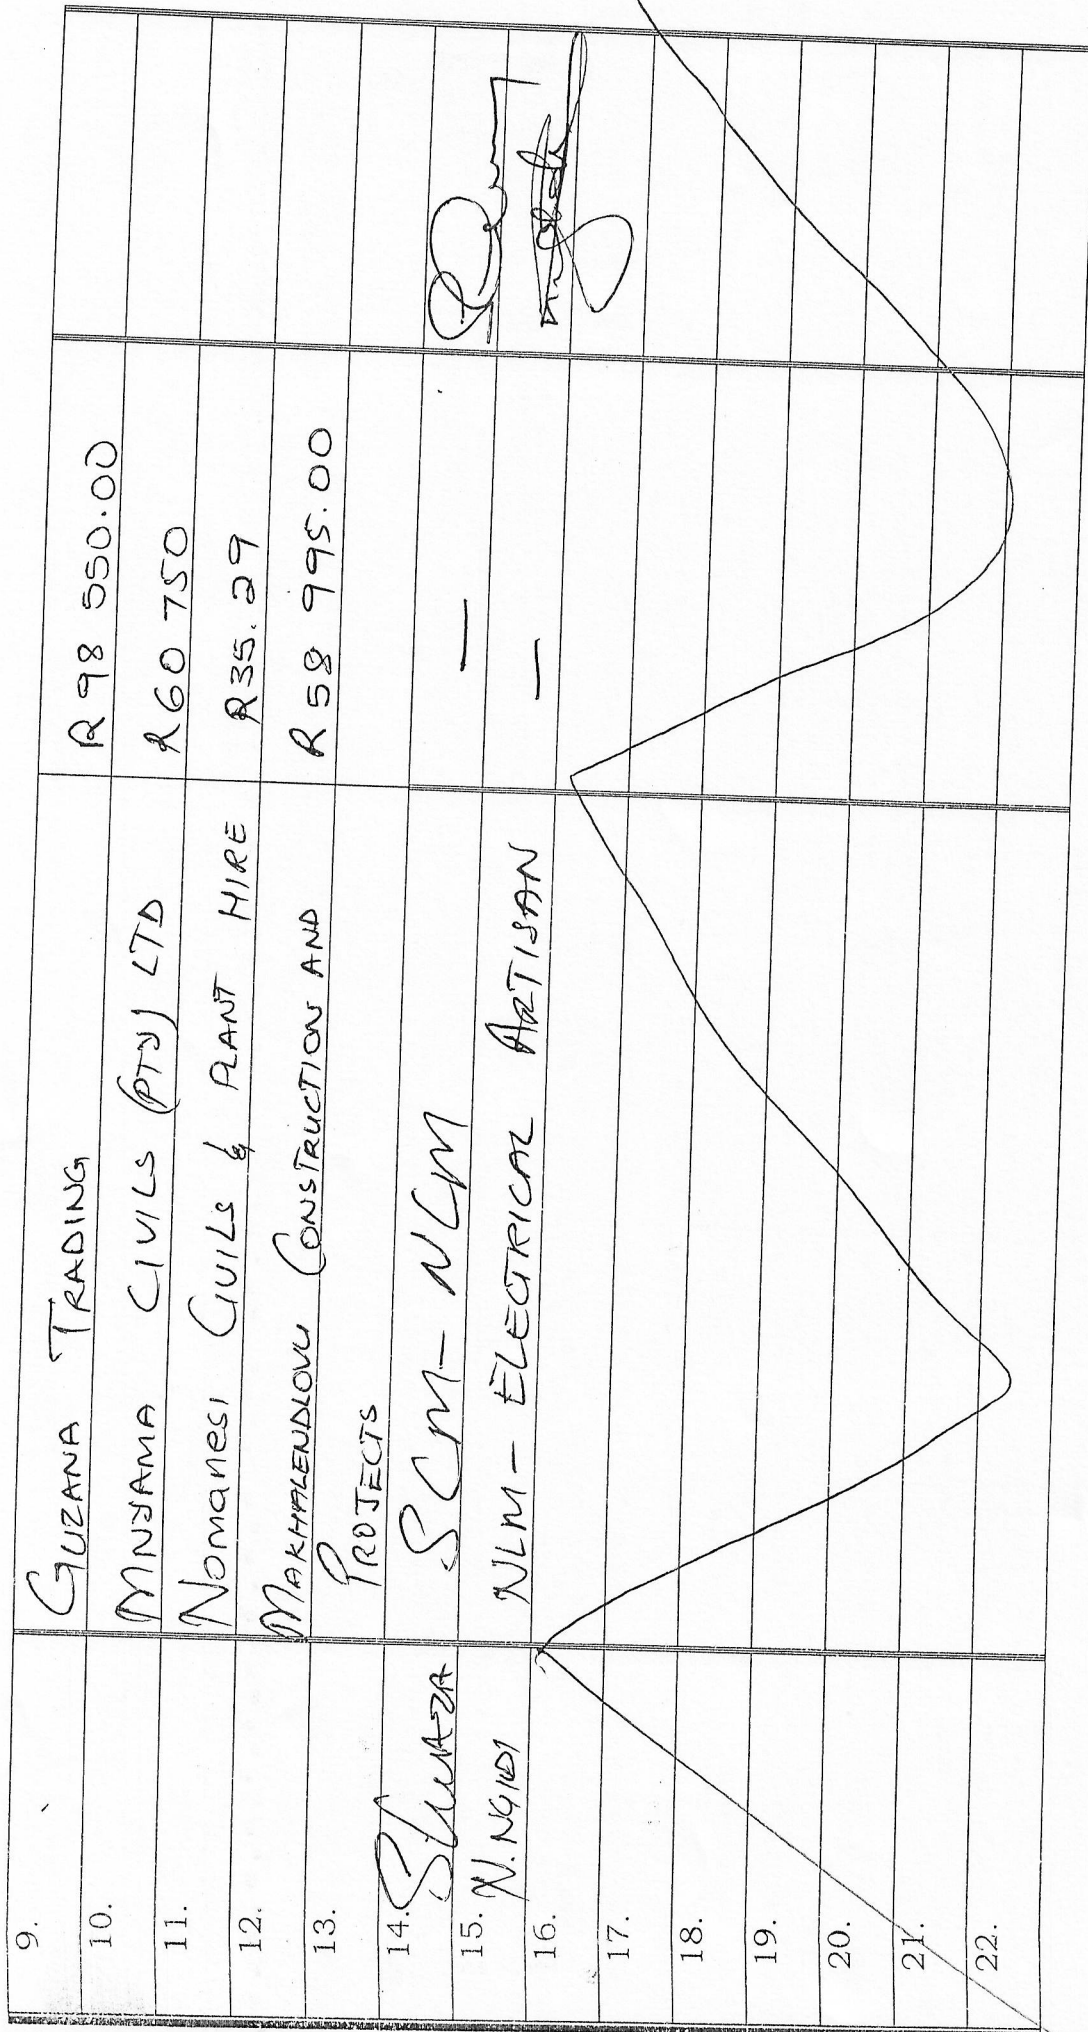 9. GUZANA TRADING R98 550.00
10. MNYAMA CIVILS (PTY) LTD R60 750
11. Nomanesi CIVILS & PLANT HIRE R35.29
12. MAKHALENDLOVU CONSTRUCTION AND R58 995.00
13. PROJECTS
14. SCM - NLM —
15. N. NGIDI NLM - ELECTRICAL ARTISAN —
16.
17.
18.
19.
20.
21.
22.